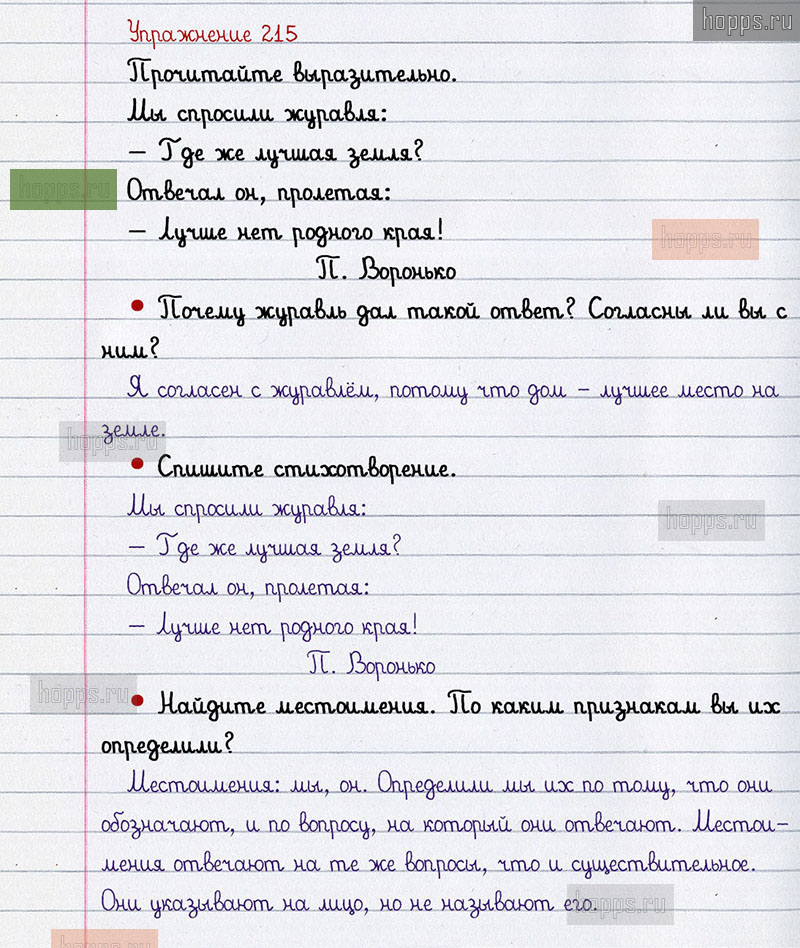 hopps.ru
Упражнение 215
Прочитайте выразительно.
Мы спросили журавля:
– Где же лучшая земля?
hopps.ru
Отвечал он, пролетая:
– Лучше нет родного края!
hopps.ru
П. Воронько
• Почему журавль дал такой ответ? Согласны ли вы с
ним?
Я согласен с журавлём, потому что дом – лучшее место на
земле.
hopps.ru
• Спишите стихотворение.
Мы спросили журавля:
hopps.ru
– Где же лучшая земля?
Отвечал он, пролетая:
– Лучше нет родного края!
П. Воронько
hopps.ru
• Найдите местоимения. По каким признакам вы их
определили?
Местоимения: мы, он. Определили мы их по тому, что они
обозначают, и по вопросу, на который они отвечают. Местои-
мения отвечают на те же вопросы, что и существительное.
Они указывают на лицо, но не называют его.
hopps.ru
hopps.ru